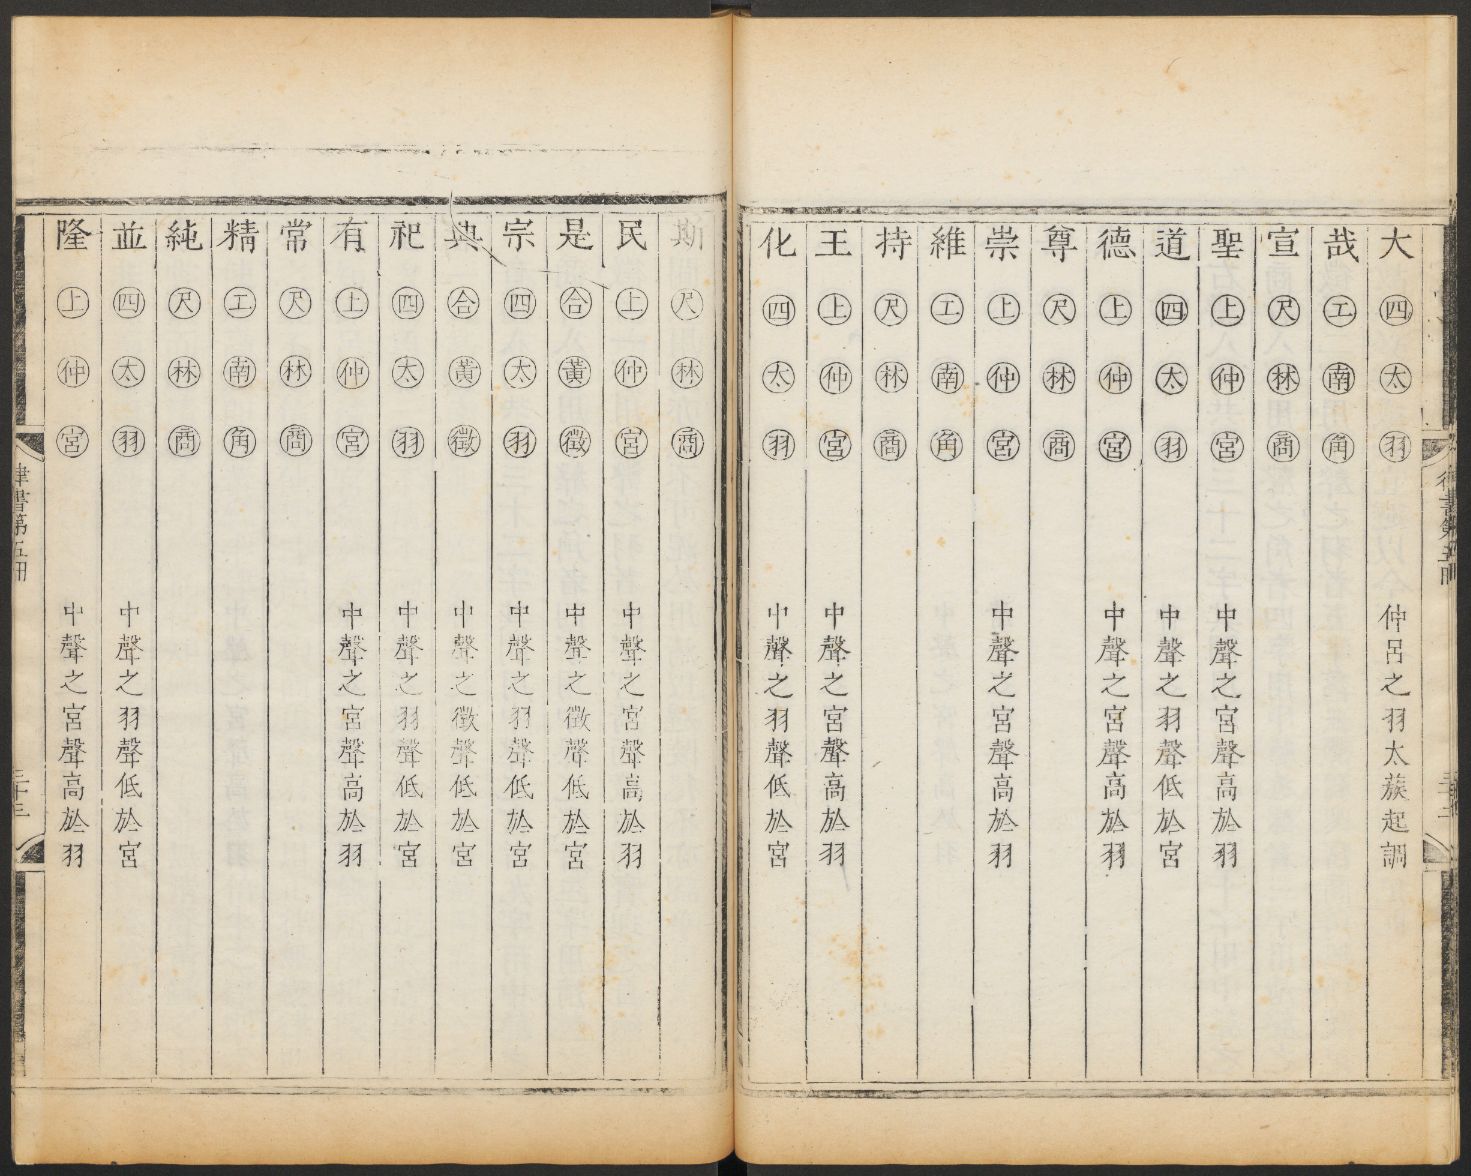 大 四 太 羽 仲呂之羽太蔟起調
哉 工 南 角
宣 尺 林 商
聖 上 仲 宮 中聲之宮聲高於羽
道 四 太 羽 中聲之羽聲低於宮
德 上 仲 宮 中聲之宮聲高於羽
尊 尺 林 商
崇 上 仲 宮 中聲之宮聲高於羽
維 工 南 角
持 尺 林 商
王 上 仲 宮 中聲之宮聲高於羽
化 四 太 羽 中聲之羽聲低於宮
斯 尺 林 商
民 上 仲 宮 中聲之宮聲高於羽
是 合 黃 徵 中聲之徵聲低於宮
宗 四 太 羽 中聲之羽聲低於宮
典 合 黃 徵 中聲之徵聲低於宮
祀 四 太 羽 中聲之羽聲低於宮
有 上 仲 宮 中聲之宮聲高於羽
常 尺 林 商
精 工 南 角
純 尺 林 商
並 四 太 羽 中聲之羽聲低於宮
隆 上 仲 宮 中聲之宮聲高於羽
律書第五冊